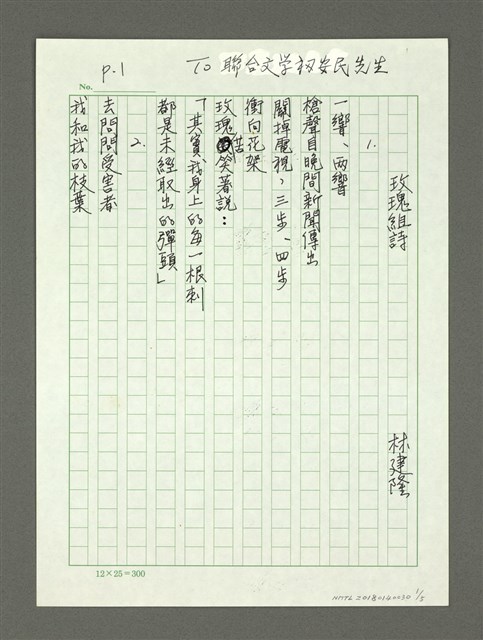 P.1
TO 聯合文学初安民先生
No.
玫瑰組詩
林建隆
1.
一響、兩響
槍聲自晚間新聞傳出
關掉電視，三步、四步
衝向花架
玫瑰苦笑著說：
「其實，我身上的每一根刺
都是未經取出的彈頭」
2.
去問問受害者
我和我的枝葉
12×25=300
NMTL 20180140050 1/5